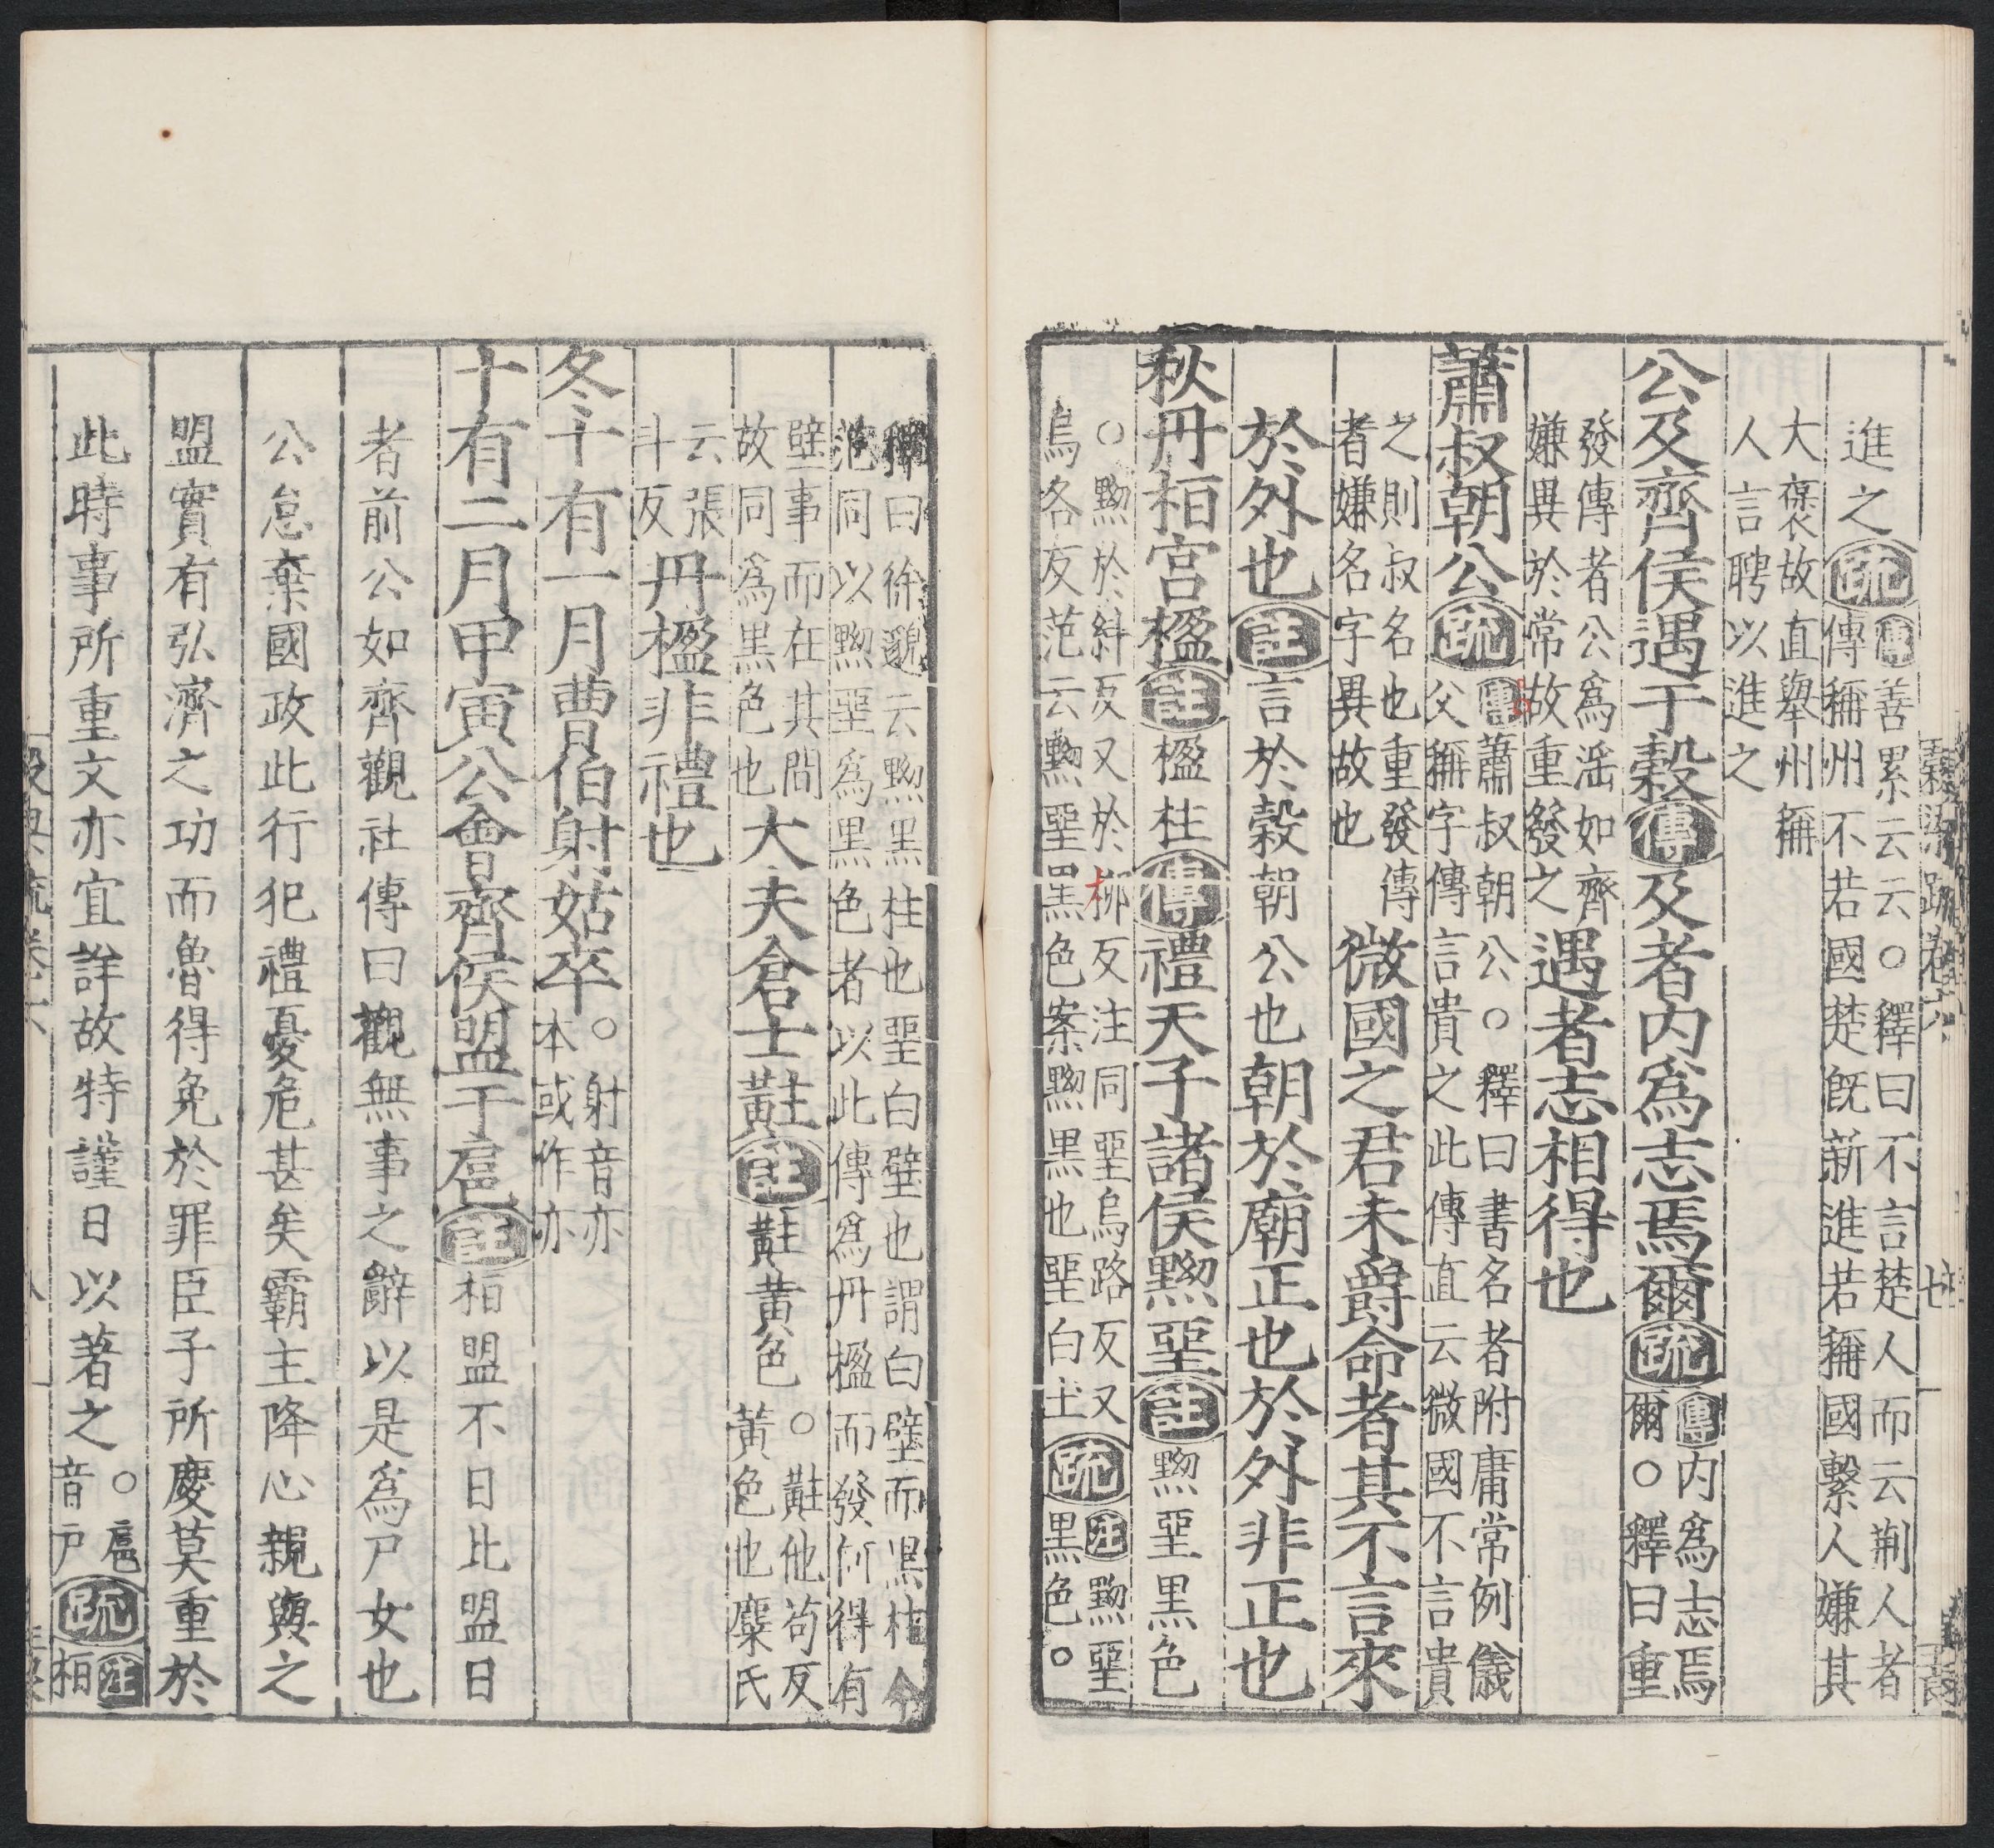 進之疏傳善累云云○釋曰不言楚人而云荆人者
傳稱州不若國楚旣新進若稱國繫人嫌其
大褒故直舉州稱
人言聘以進之
公及齊侯遇于穀傳及者内爲志焉爾疏傳内爲志焉
爾○釋曰重
發傳者公爲淫如齊
嫌異於常故重發之遇者志相得也
蕭叔朝公疏傳蕭叔朝公○釋曰書名者附庸常例儀
父稱字傳言貴之此傳直云微國不言貴
之則叔名也重發傳
者嫌名字異故也微國之君未爵命者其不言來
於外也註言於穀朝公也朝於廟正也於外非正也
秋丹栢宮楹註楹柱傳禮天子諸侯黝堊註黝堊黒色
○黝於糾反又於柳反注同堊烏路反又
烏各反范云黝堊黒色案黝黒也堊白土疏注黝堊
黒色○
釋曰徐邈云黝黒柱也堊白壁也謂白壁而黒柱今
范同以黝堊爲黒色者以此傳爲丹楹而發何得有
壁事而在其間
故同爲黒色也大夫倉士黈註黈黄色○黈他苟反
黄色也麋氏
云張
斗反丹楹非禮也
冬十有一月曹伯射姑卒○射音亦
本或作亦
十有二月甲寅公會齊侯盟于扈註栢盟不日比盟日
者前公如齊觀社傳曰觀無事之辭以是爲尸女也
公怠棄國政此行犯禮憂危甚矣霸主降心親與之
盟實有弘濟之功而魯得免於罪臣子所慶莫重於
此時事所重文亦宜詳故特謹日以著之○扈
音戸疏注
栢